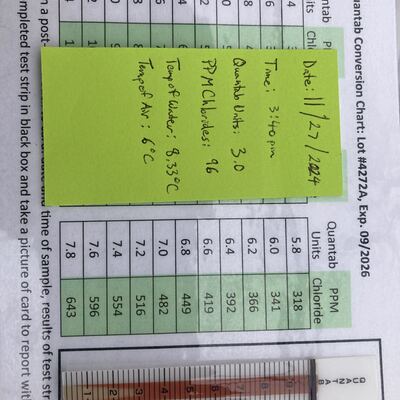 Quantab Conversion Chart: Lot #4272A, Exp. 09/2026
Date: 11/27/2024
Time: 3:40 pm
Quantab Units: 3.0
PPM Chlorides: 96
Temp of Water: 8.33°C
Temp of Air: 6°C
Quantab Units PPM Chloride
5.8 318
6.0 341
6.2 366
6.4 392
6.6 419
6.8 449
7.0 482
7.2 516
7.4 554
7.6 596
7.8 643
QUANTAB
time of sample, results of test
ompleted test strip in black box and take a picture of card to report with